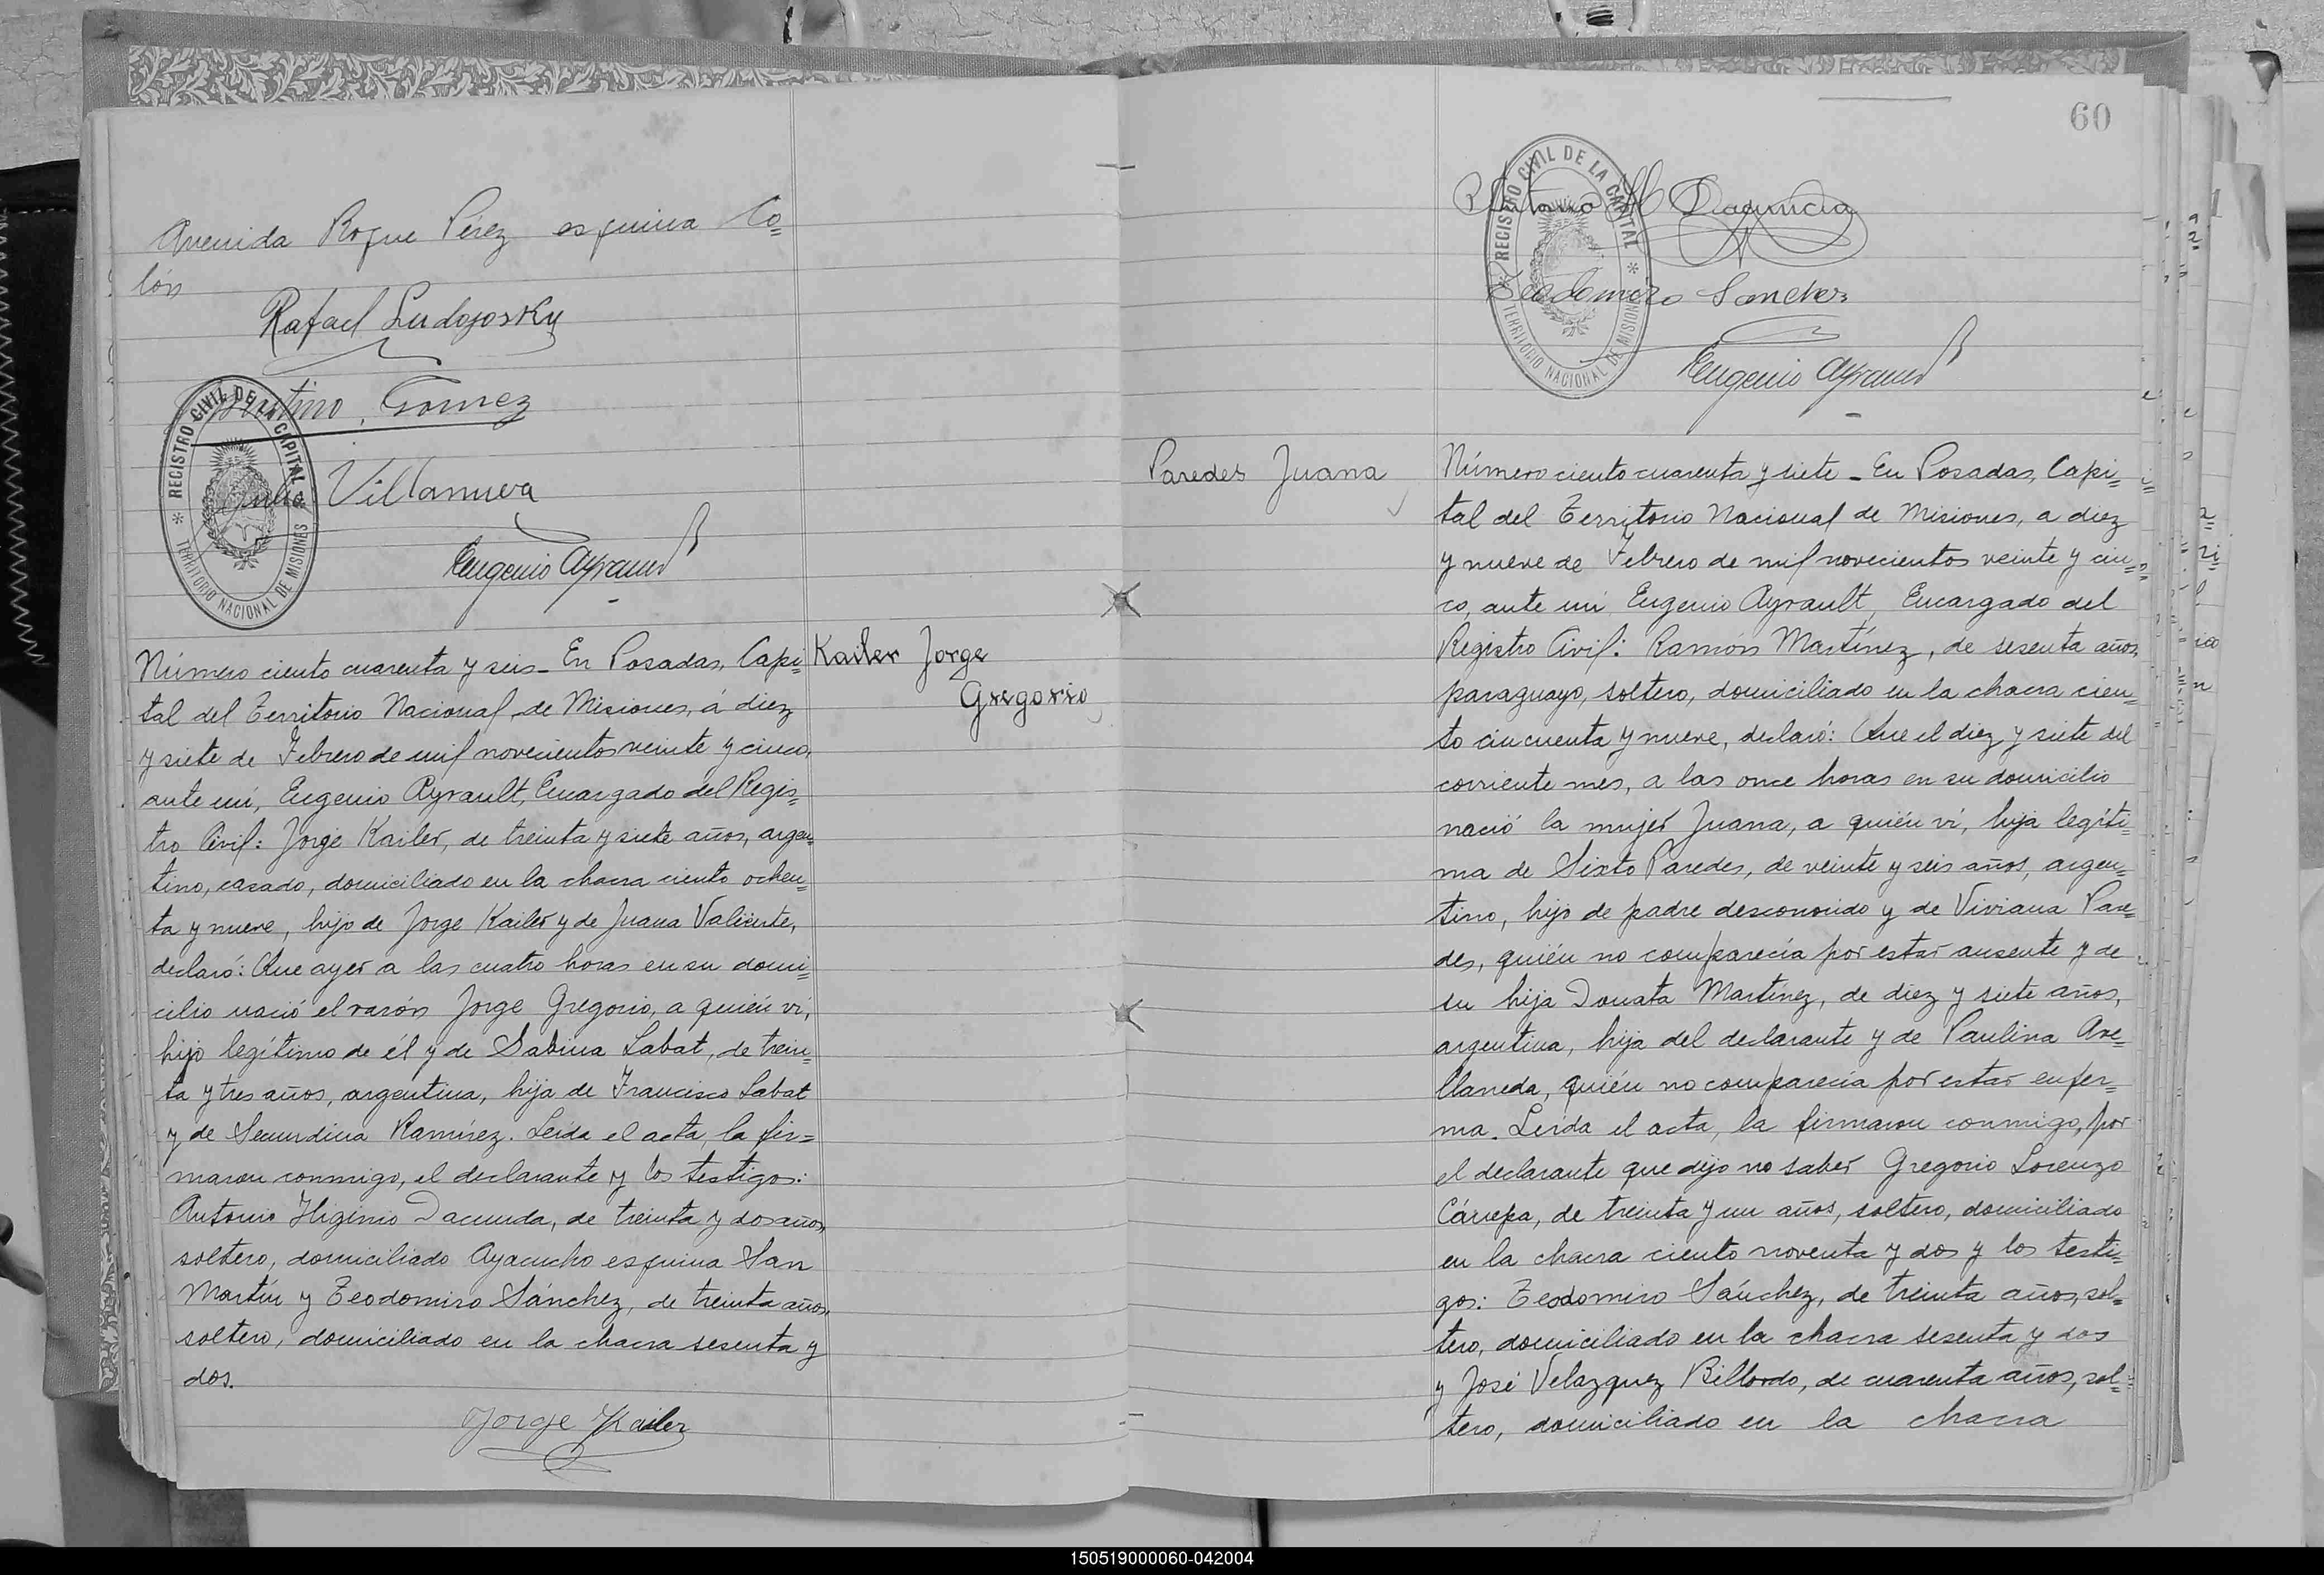 Avenida Roque Pérez esquina Co=
lón
Rafael Ludojosky
Gómez
Villanueva
Eugenio Ayrault
REGISTRO CIVIL DE LA CAPITAL
* TERRITORIO NACIONAL DE MISIONES
Número ciento cuarenta y seis - En Posadas, Capi=
Kailer Jorge
Gregorio
tal del Territorio Nacional de Misiones, á diez
y siete de Febrero de mil novecientos veinte y cinco,
ante mí, Eugenio Ayrault, Encargado del Regis=
tro Civil: Jorge Kailer, de treinta y siete años, argen=
tino, casado, domiciliado en la chacra ciento ochen=
ta y nueve, hijo de Jorge Kailer y de Juana Valiente,
declaró: Que ayer a las cuatro horas en su domi=
cilio nació el varón Jorge Gregorio, a quién ví,
hijo legítimo de él y de Sabina Labat, de trein=
ta y tres años, argentina, hija de Francisco Labat
y de Secundina Ramírez. Leída el acta, la fir=
maron conmigo, el declarante y los testigos:
Antonio Higinio Dacunda, de treinta y dos años,
soltero, domiciliado Ayacucho esquina San
Martín y Teodomiro Sánchez, de treinta años,
soltero, domiciliado en la chacra sesenta y
dos.
Jorge Kailer
60
REGISTRO CIVIL DE LA CAPITAL *
TERRITORIO NACIONAL DE MISIONES
Antonio H Dacunda
Teodomiro Sanchez
Eugenio Ayrault
Paredes Juana
Número ciento cuarenta y siete - En Posadas, Capi=
tal del Territorio Nacional de Misiones, a diez
y nueve de Febrero de mil novecientos veinte y cin=
co, ante mí Eugenio Ayrault, Encargado del
Registro Civil: Ramón Martínez, de sesenta años,
paraguayo, soltero, domiciliado en la chacra cien=
to cincuenta y nueve, declaró: Que el diez y siete del
corriente mes, a las once horas en su domicilio
nació la mujer Juana, a quién ví, hija legíti=
ma de Sixto Paredes, de veinte y seis años, argen=
tino, hijo de padre desconocido y de Viviana Pare=
des, quién no comparecía por estar ausente y de
su hija Donata Martínez, de diez y siete años,
argentina, hija del declarante y de Paulina Ave=
llaneda, quién no comparecía por estar enfer=
ma. Leída el acta, la firmaron conmigo, por
el declarante que dijo no saber Gregorio Lorenzo
de treinta y un años, soltero, domiciliado
en la chacra ciento noventa y dos y los testi=
gos: Teodomiro Sánchez, de treinta años, sol=
tero, domiciliado en la chacra sesenta y dos
y José Velazquez Billordo, de cuarenta años, sol=
tero, domiciliado en la chacra
150519000060-042004